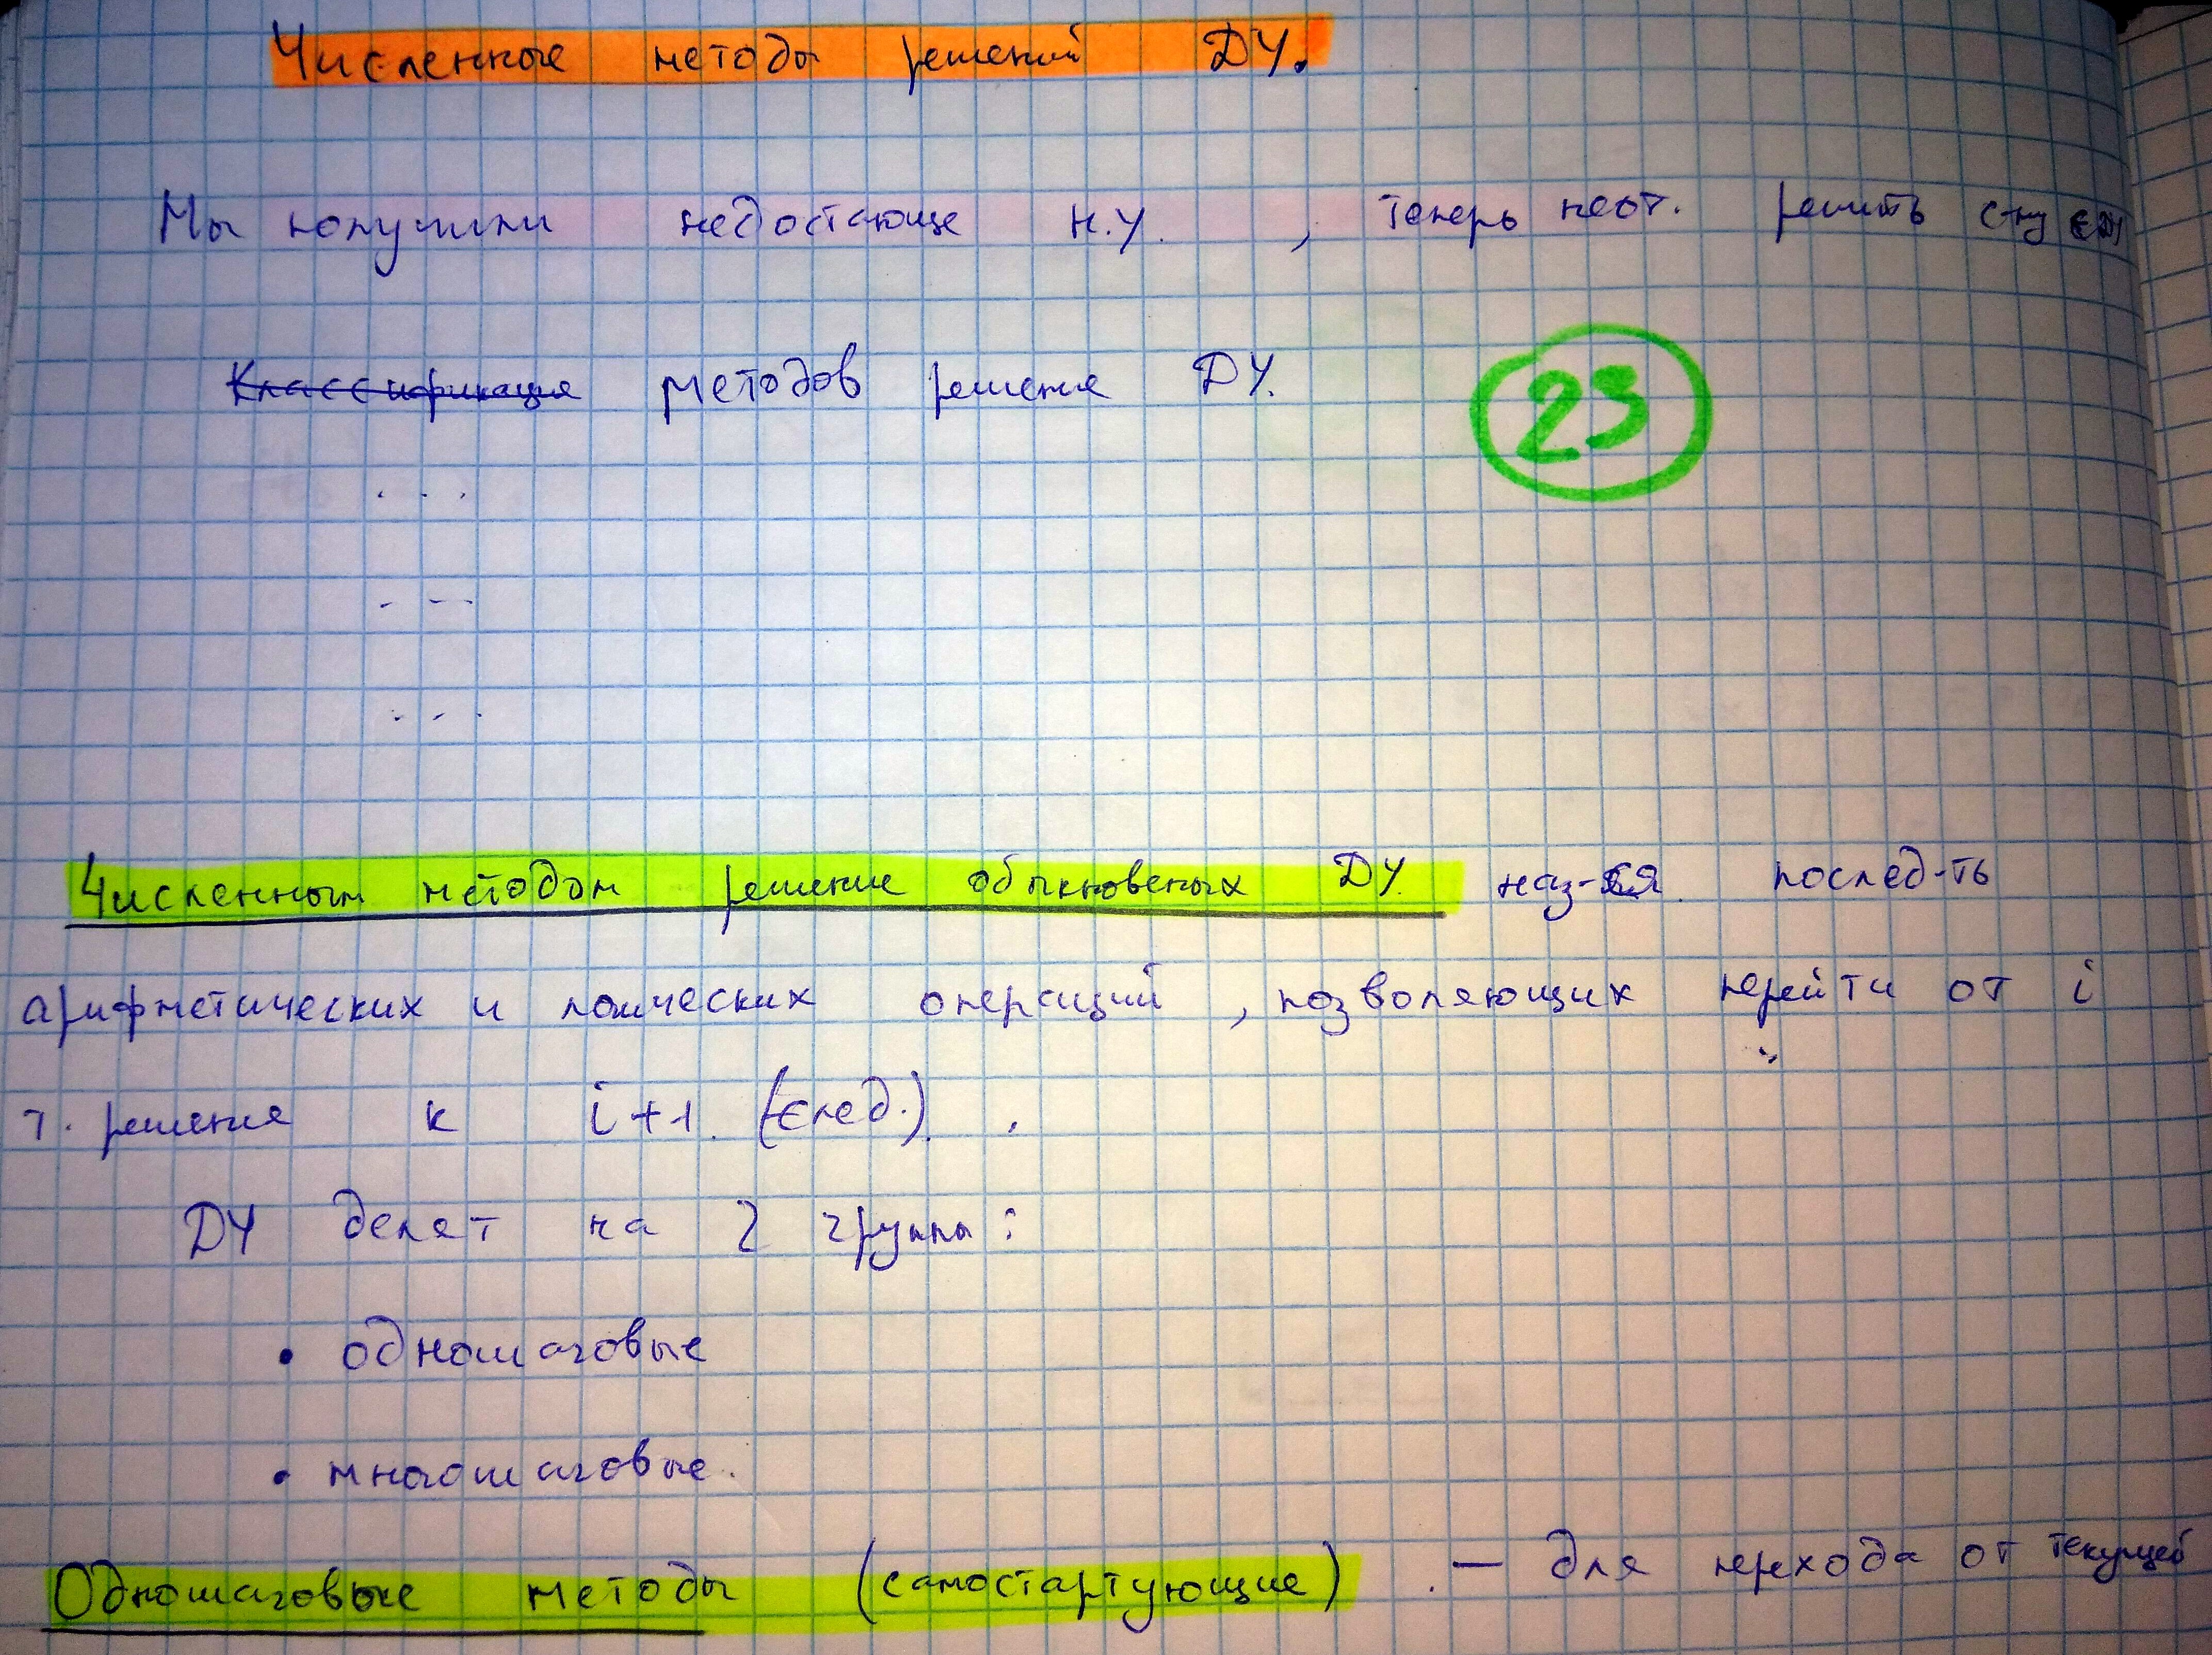 Численные методы решений ДУ.
Мы получили недостающие н.у. , теперь неот. решить с-му
Классификация методов решение ДУ.
23
. . .
- - -
. . .
Численным методом решение обыкновеных ДУ наз-ся послед-ть
арифметических и логических операций , позволяющих перейти от i
т. решения к i+1 (след.) .
ДУ делят на 2 группы :
• одношаговые
• многошаговые.
Одношаговые методы (самостартующие) . — для перехода от текущей